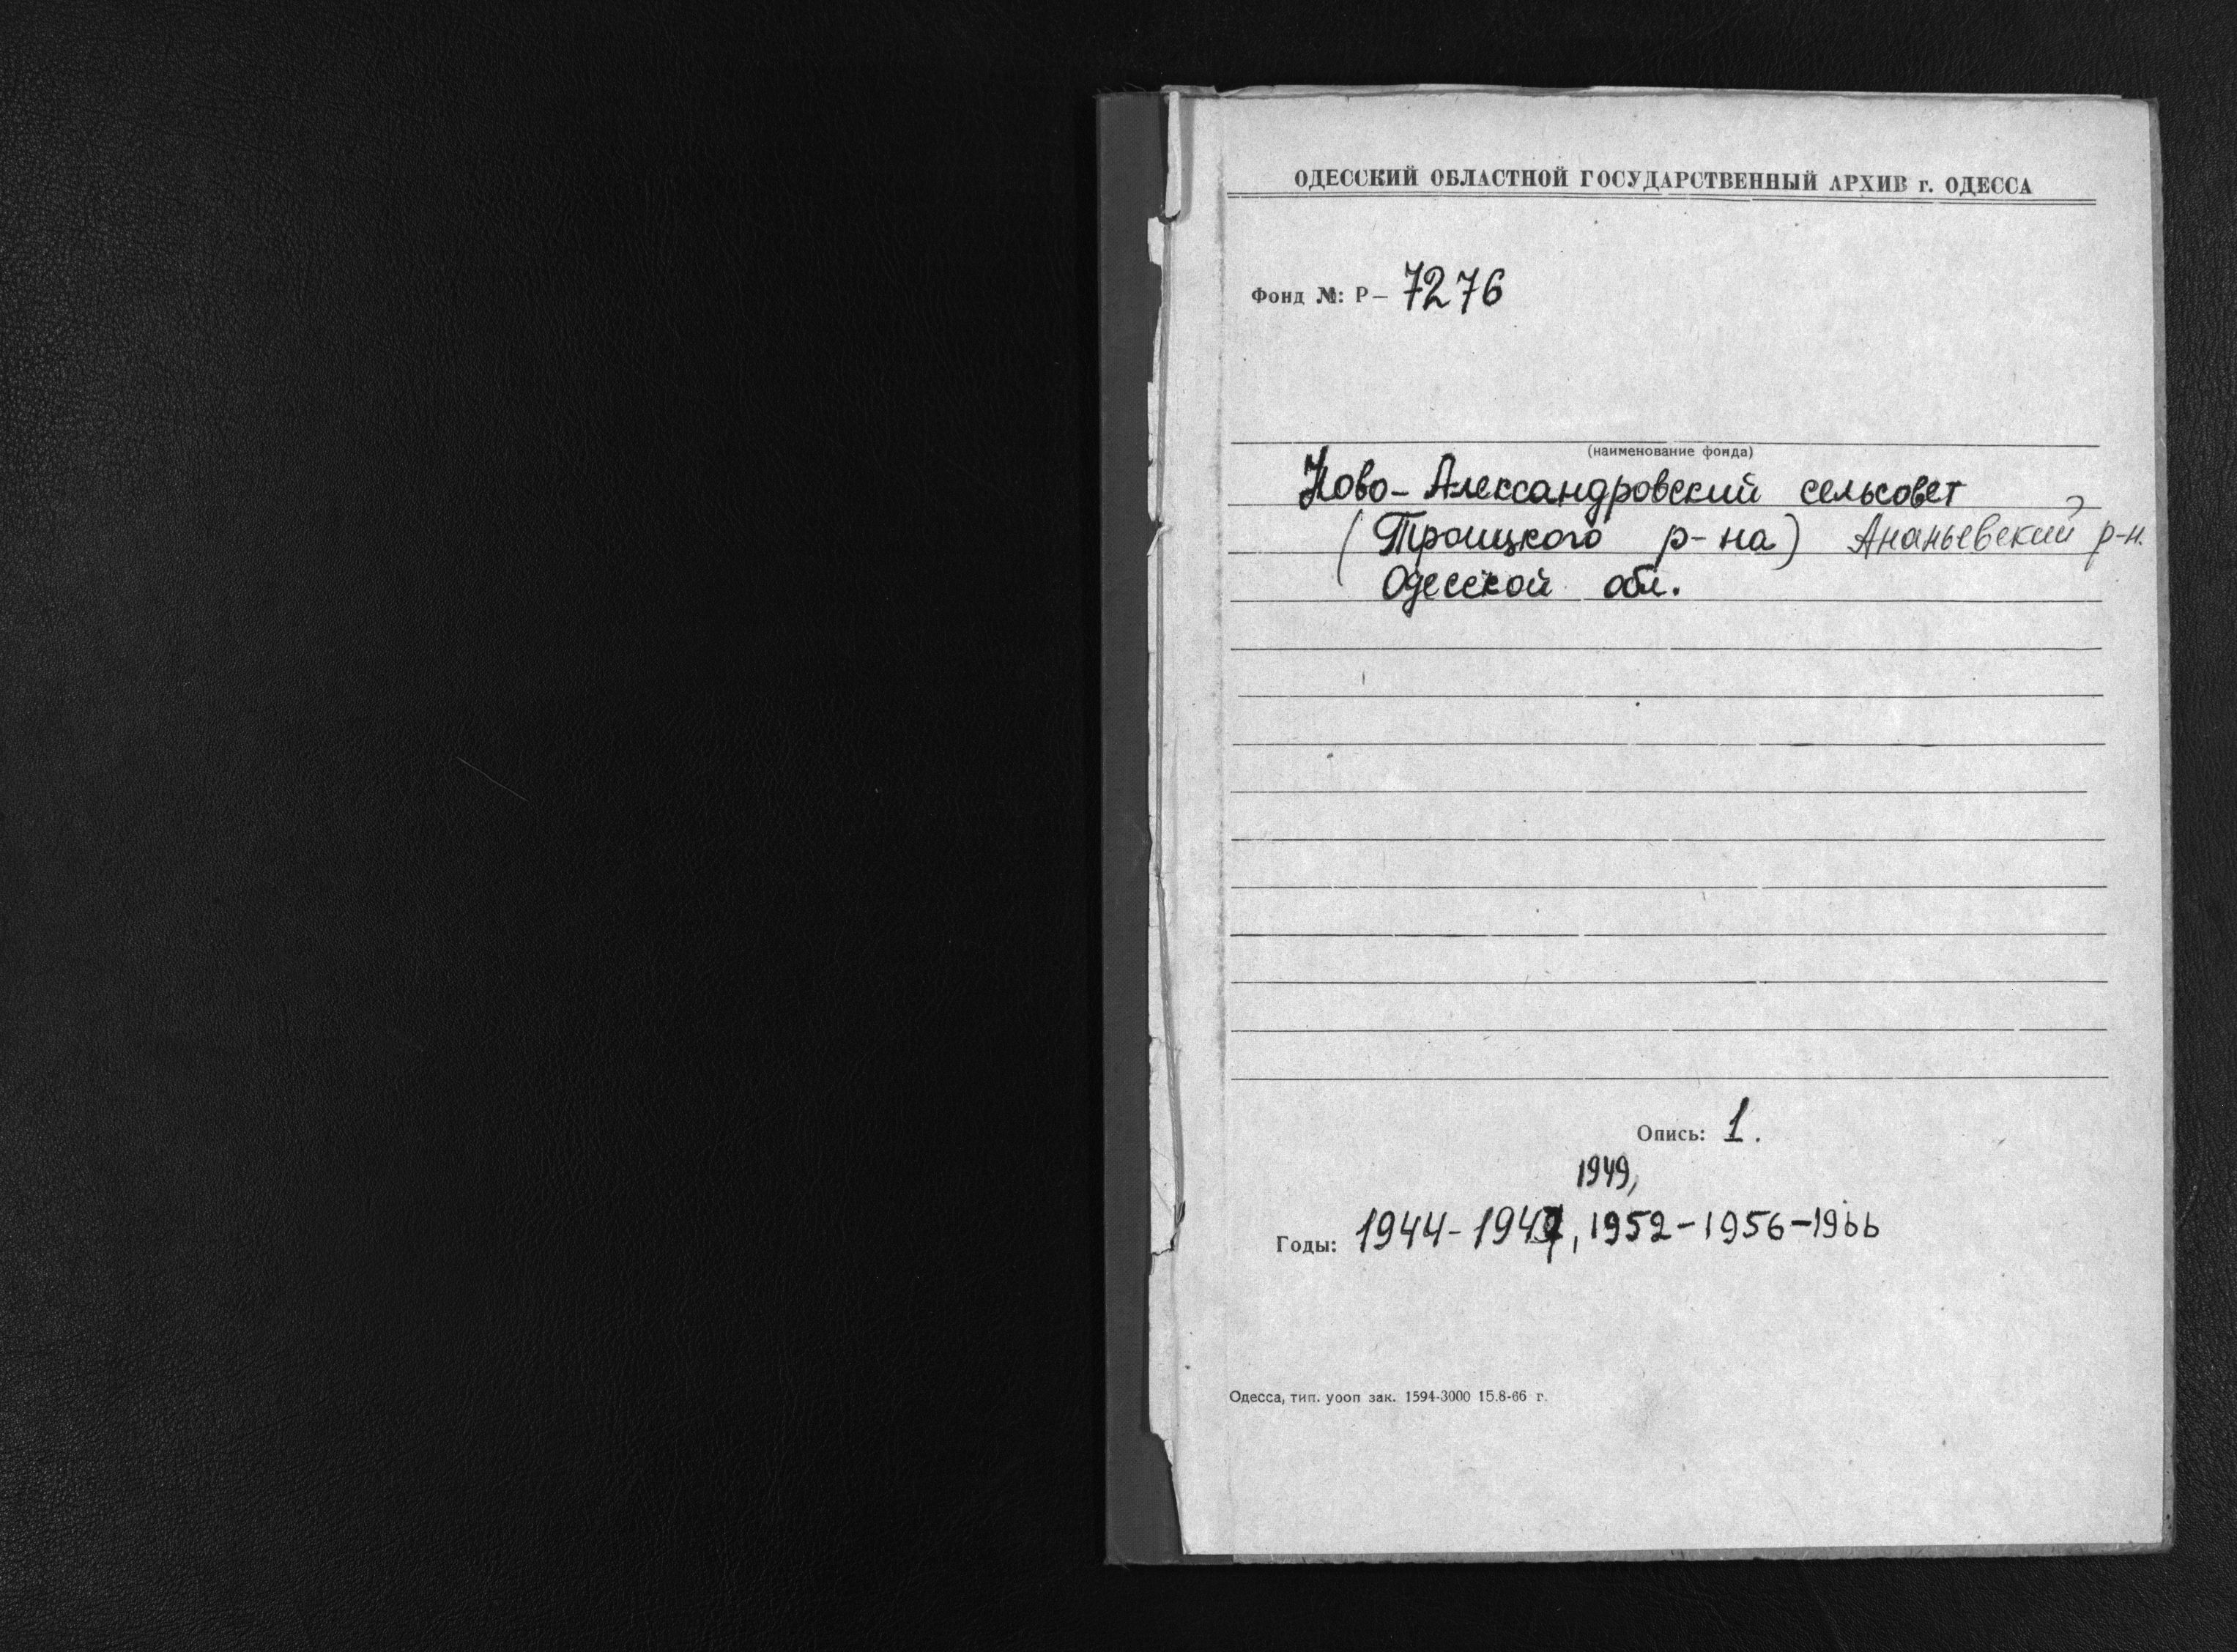 ОДЕССКИЙ ОБЛАСТНОЙ ГОСУДАРСТВЕННЫЙ АРХИВ г. ОДЕССА
Фонд №: Р— 7276
(наименование фонда)
Ново-Александровский сельсовет
(Троицкого р-на) Ананьевский р-н.
Одесской обл.
Опись: 1.
1949,
Годы: 1944-1947, 1952-1956-1966
Одесса, тип. уооп зак. 1594-3000 15.8-66 г.